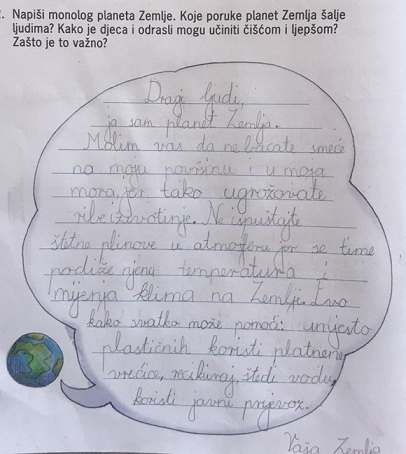 . Napiši monolog planeta Zemlje. Koje poruke planet Zemlja šalje
ljudima? Kako je djeca i odrasli mogu učiniti čišćom i ljepšom?
Zašto je to važno?
Dragi ljudi,
ja sam planet Zemlja.
Molim vas da ne bacate smeće
na moju površinu i u moja
mora, jer tako ugrožavate
ribe i životinje. Ne ispuštajte
štetne plinove u atmosferu jer se time
podiže njena temperatura i
mijenja klima na Zemlji. Evo
kako svatko može pomoći: umjesto
plastičnih koristi platnene
vrećice, recikliraj, štedi vodu,
koristi javni prijevoz.
Vaša Zemlja